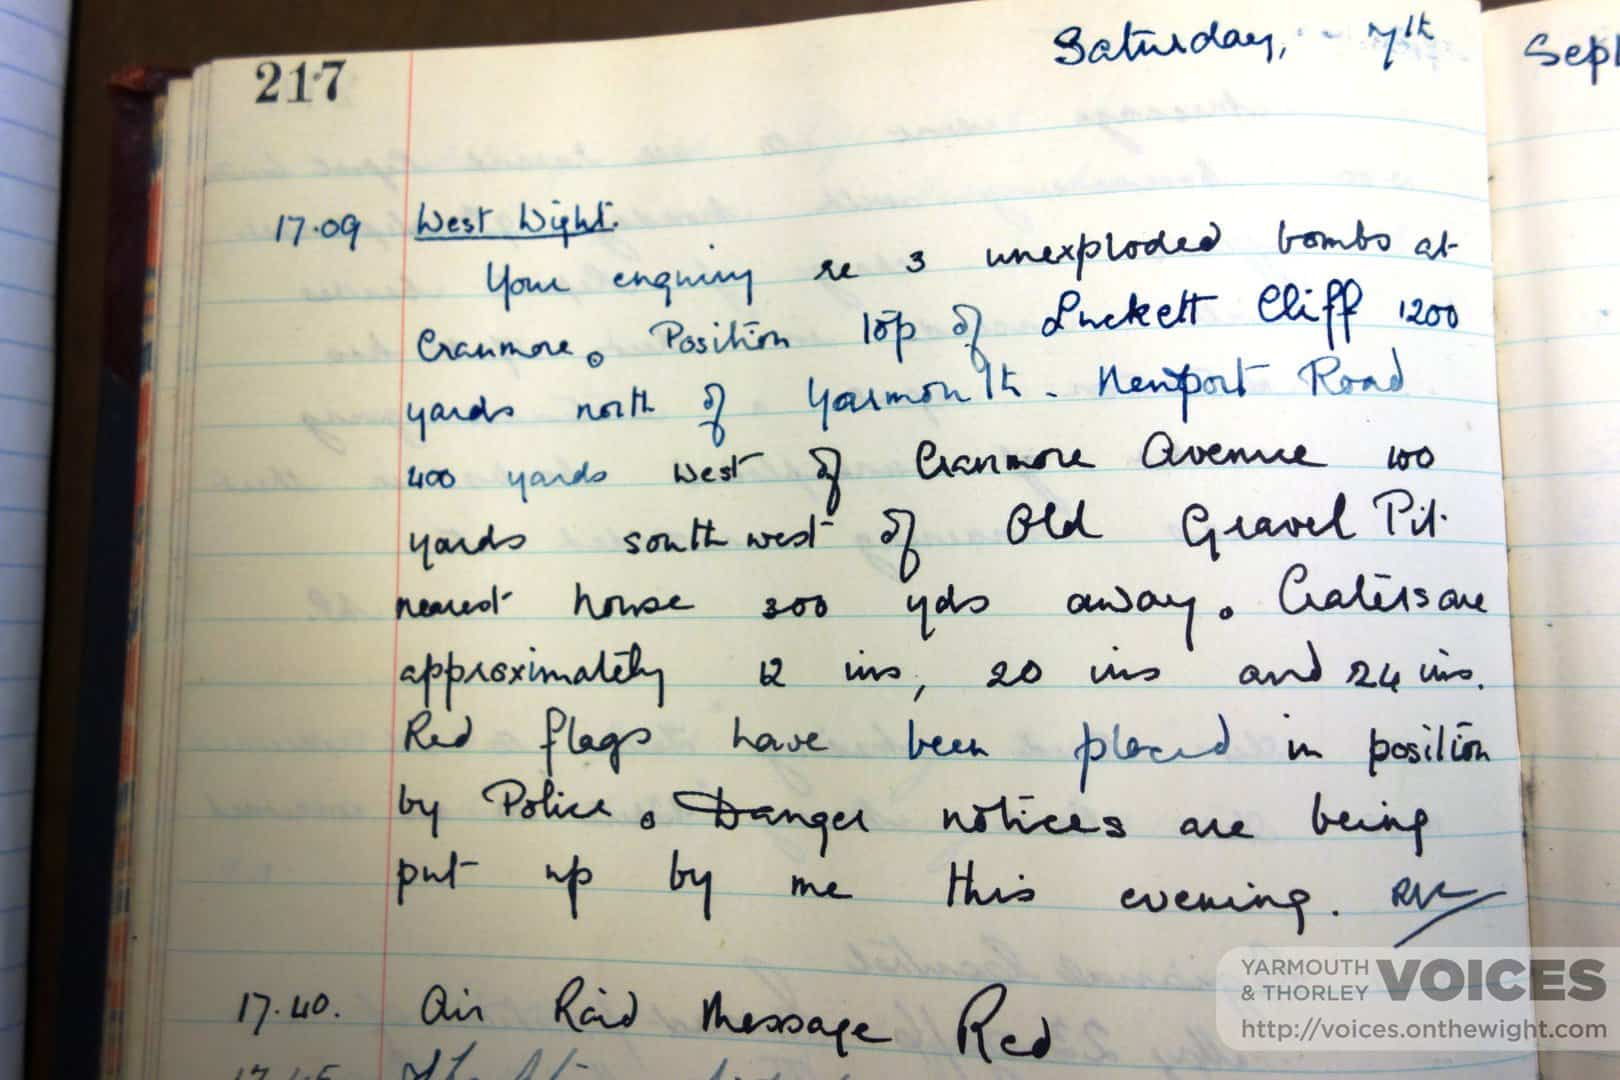 217
Saturday, 7th
Sept
17.09 West Wight.
Your enquiry re 3 unexploded bombs at
Cranmore. Position top of Luckett Cliff 1200
yards north of Yarmouth - Newport Road
400 yards west of Cranmore Avenue 100
yards south west of Old Gravel Pit.
nearest house 300 yds away. Craters are
approximately 12 ins, 20 ins and 24 ins.
Red flags have been placed in position
by Police. Danger notices are being
put up by me this evening.
17.40. Air Raid Message Red
17.45
YARMOUTH & THORLEY VOICES
http://voices.onthewight.com